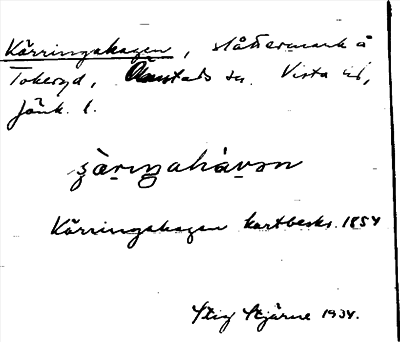 Kärringahagen, slåttermark å
Tokeryd, Ölmstads sn. Vista hd,
Jönk. l.
Kärringahagen kartbeskr. 1854
Stig Stjärne 1934.